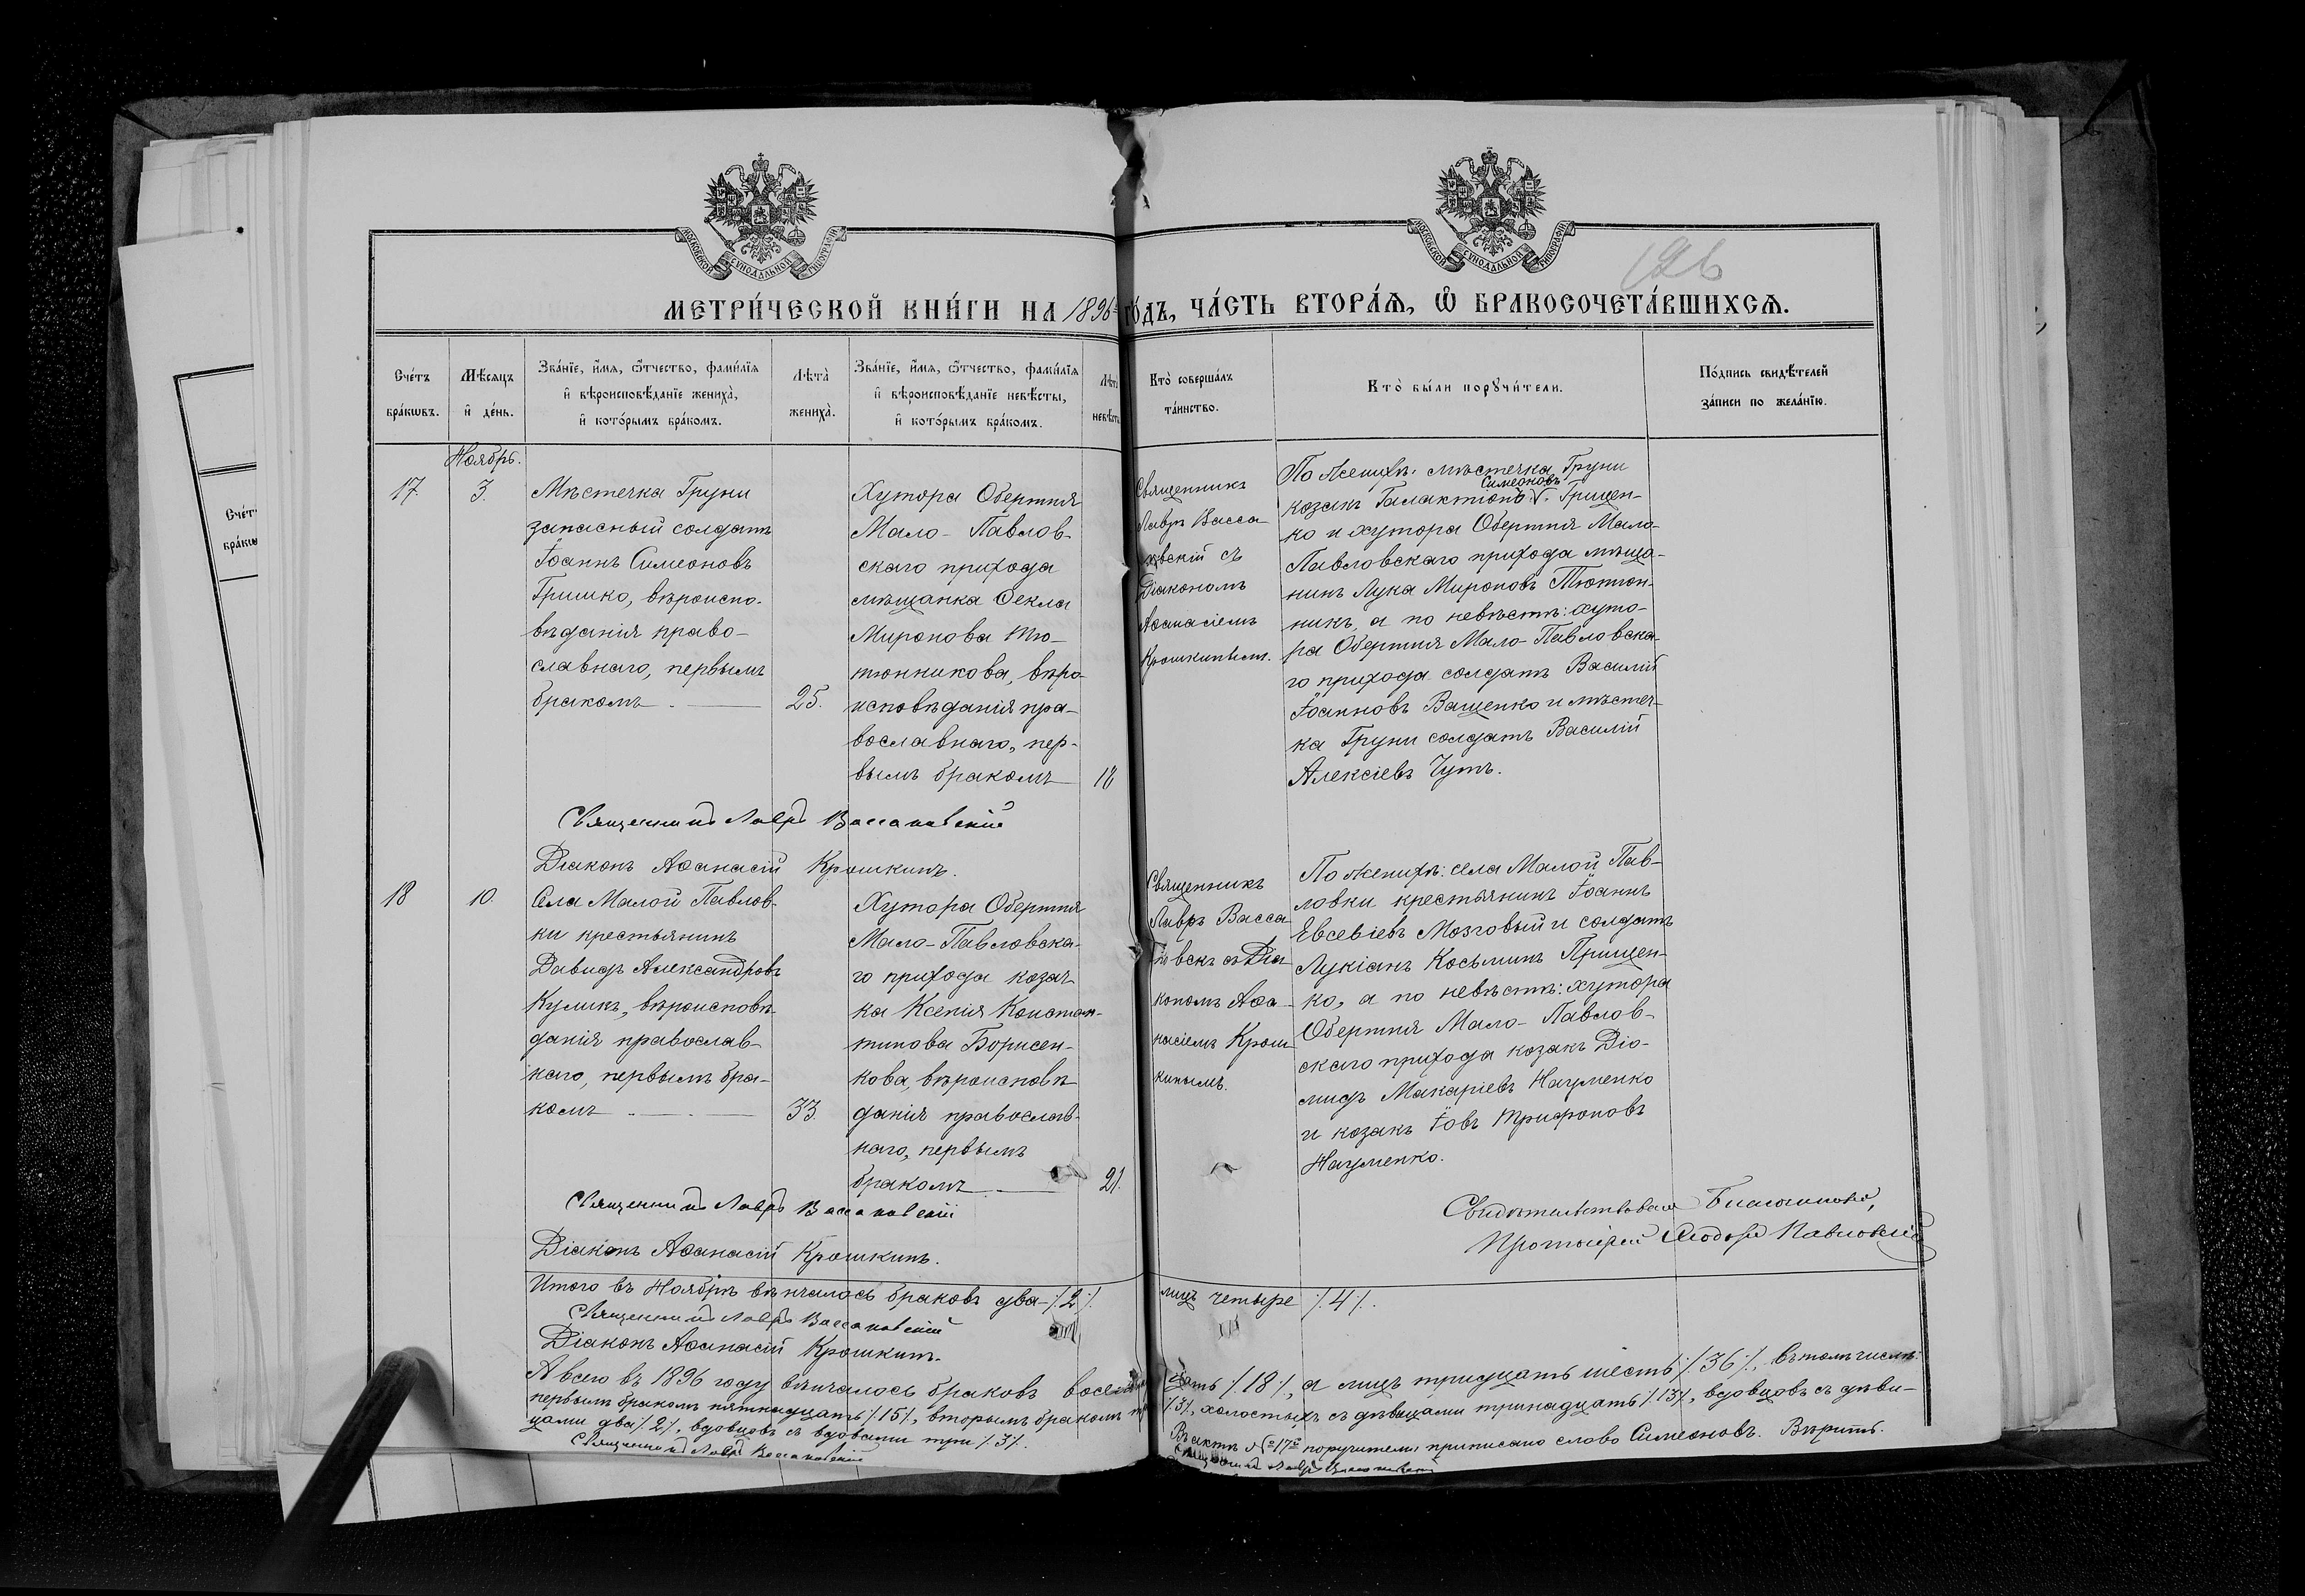 126
МОСКОВСКОЙ СѴНОДАЛЬНОЙ ТИПОГРАФІИ
МОСКОВСКОЙ СѴНОДАЛЬНОЙ ТИПОГРАФІИ
МЕТРИ́ЧЕСКОЙ КНИ́ГИ НА 1896 й ГО́ДЪ, ЧА́СТЬ ВТОРА́Ѧ, Ѡ҆ БРАКОСОЧЕТА́ВШИХСѦ.
Сче́тъ
бра́кѡвъ.
Мѣ́сяцъ
и҆ де́нь.
Зва́нїе, и҆́мя, ѻ҆́тчество, фами́лїя
и҆ вѣроисповѣ́данїе жениха̀,
и҆ кото́рымъ бра́комъ.
Лѣта̀
жениха̀.
Зва́нїе, и҆́мя, ѻ҆́тчество, фами́лїя
и҆ вѣроисповѣ́данїе невѣ́сты,
и҆ кото́рымъ бра́комъ.
Лѣта̀
невѣ́сты
Кто̀ соверша́лъ
та́инство.
Кто̀ бы́ли порꙋчи́тели.
По́дпись свидѣ́телей
за́писи по жела́нїю.
Ноябрь.
17.
3.
Мѣстечка Груни
запасный солдатъ
Іоаннъ Симеоновъ
Гришко, вѣроиспо-
вѣданія право-
славнаго, первымъ
бракомъ
25.
Хутора Обертня
Мало-Павлов-
скаго прихода
мѣщанка Ѳекла
Миронова Тю-
тюнникова, вѣро-
исповѣданія пра-
вославнаго, пер-
вымъ бракомъ
18
Священникъ
Лавръ Васса-
ковскій съ
Діакономъ
Аѳанасіемъ
Крошкинымъ.
По женихѣ: мѣстечка Груни
Симеоновъ
козакъ Галактіонъ V. Грицен-
ко и хутора Обертня Мало-
Павловскаго прихода мѣща-
нинъ Лука Мироновъ Тютюн-
никъ, а по невѣстѣ: хуто-
ра Обертня Мало-Павловска-
го прихода солдатъ Василій
Іоанновъ Ващенко и мѣстеч-
ка Груни солдатъ Василій
Алексіевъ Чутъ.
Священникъ Лавръ Вассаковскій
Діаконъ Аѳанасій Крошкинъ.
18
10.
Села Малой Павлов-
ки крестьянинъ
Давидъ Александровъ
Куликъ, вѣроисповѣ-
данія православ-
наго, первымъ бра-
комъ
33.
Хутора Обертня
Мало-Павловска-
го прихода козач-
ка Ксенія Констан-
тинова Борисен-
кова, вѣроисповѣ-
данія православ-
наго, первымъ
бракомъ
21.
Священникъ
Лавръ Васса
съ Діа
кономъ Аѳа-
насіемъ Крош
кинымъ.
По женихѣ: села Малой Пав-
ловки крестьянинъ Іоаннъ
Евсевіевъ Мозговый и солдатъ
Лукіанъ Косьминъ Прищен-
ко, а по невѣстѣ: хутора
Обертня Мало-Павлов-
скаго прихода козакъ Діо-
мидъ Макаріевъ Науменко
и козакъ Іовъ Трифоновъ
Науменко.
Священникъ Лавръ Вассаковскій
Діаконъ Аѳанасій Крошкинъ.
Свидѣтельствовалъ
Протоіерей Ѳеодоръ Павловскій
Итого въ Ноябрѣ вѣнчалось браковъ два ⁒2⁒, лицъ четыре ⁒4⁒.
Священникъ Лавръ Вассаковскій
Діаконъ Аѳанасій Крошкинъ.
А всего въ 1896 году вѣнчалось браковъ восемнадцать ⁒18⁒, а лицъ тридцать шесть ⁒36⁒, въ томъ числѣ:
первымъ бракомъ пятнадцать ⁒15⁒, вторымъ бракомъ три ⁒3⁒, холостыхъ съ дѣвицами тринадцать ⁒13⁒, вдовцовъ съ дѣви-
цами два ⁒2⁒, вдовцовъ съ вдовами три ⁒3⁒.
Въ актѣ № 17й поручителя приписано слово Симеоновъ. Вѣрить.
Священникъ Лавръ Вассаковскій
Священникъ Лавръ Вассаковскій
Сче́тъ
бра́кѡвъ